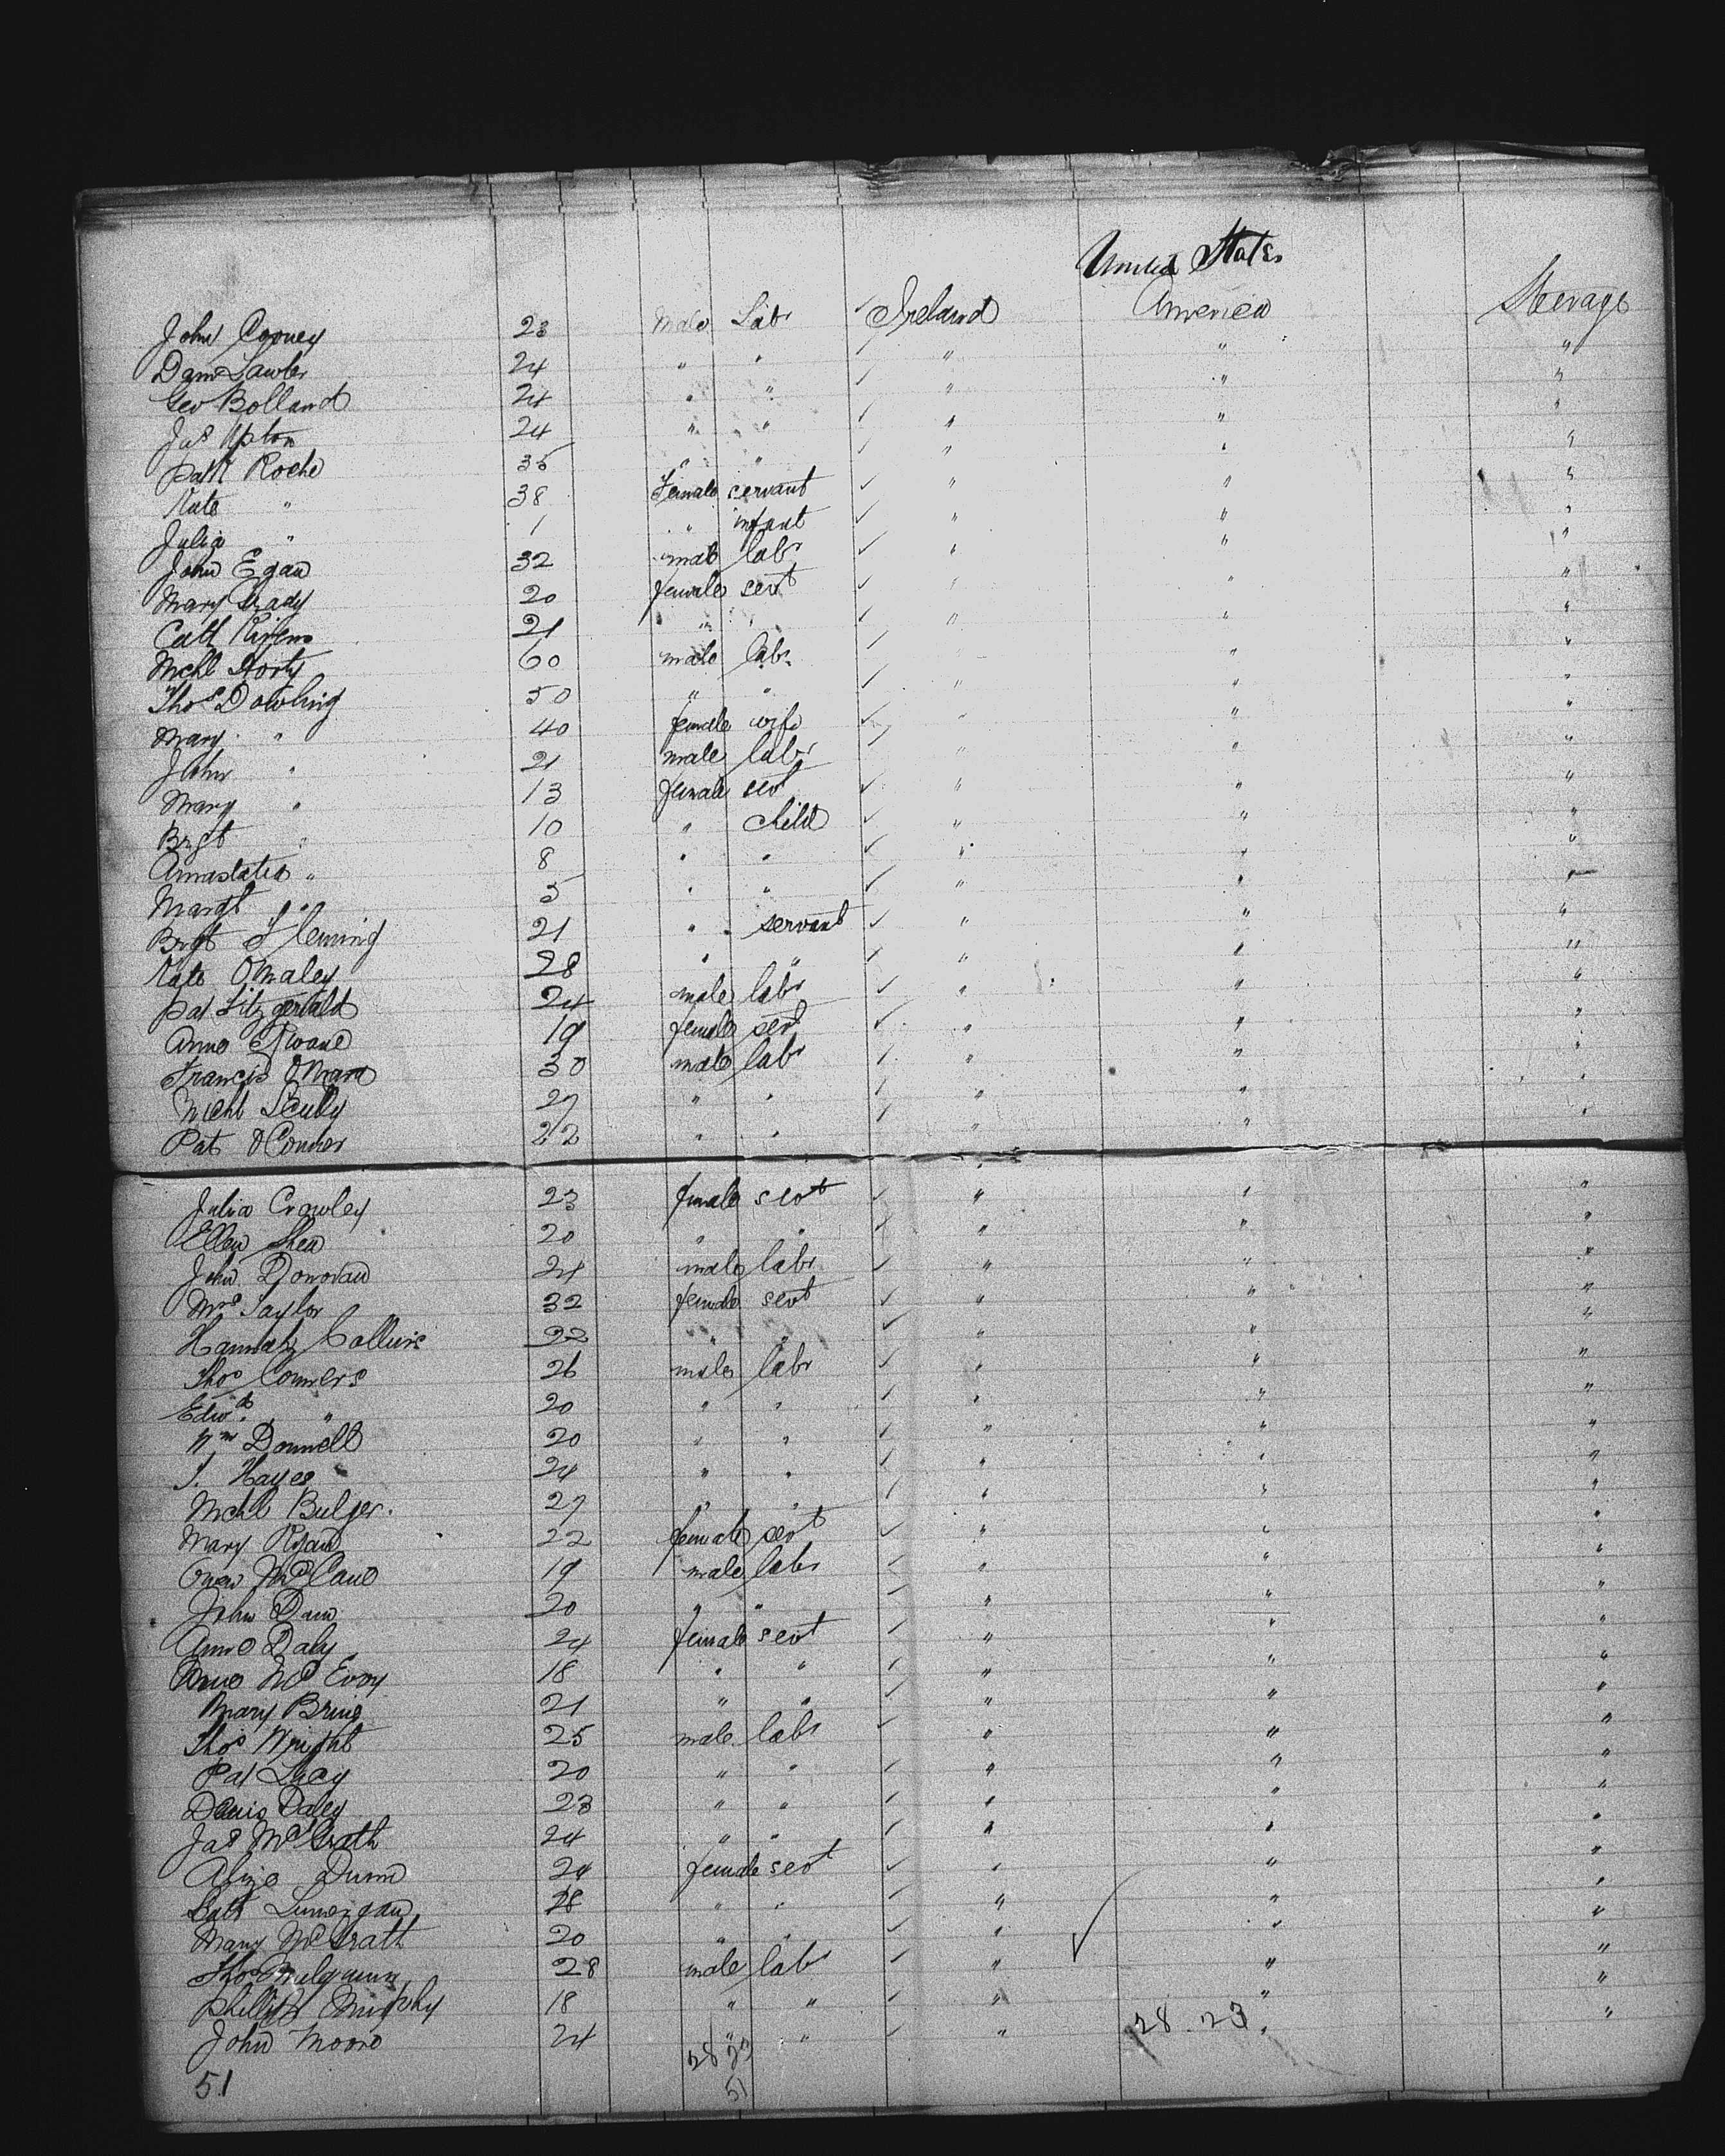 United States
John Cooney 23 Male Labr ✓ Ireland America Sterage
Danl Lawler 24 " " ✓ " " "
Geo Bolland 24 " " ✓ " " "
Jas Upton 24 " " ✓ " " "
Patk Roche 35 " " ✓ " " "
Kate " 38 Female servant ✓ " " "
Julia " 1 " infant ✓ " " "
John Egan 32 male labr ✓ " " "
Mary Grady 20 female servt ✓ " " "
Cath 21 " " ✓ " " "
Michl 60 male labr ✓ " " "
Thos Dowling 50 " " ✓ " " "
Mary " 40 female wife ✓ " " "
John " 21 male labr ✓ " " "
Mary " 13 female servt ✓ " " "
Brgt " 10 " child ✓ " " "
Annastatia " 8 " " ✓ " " "
Margt " 5 " " ✓ " " "
Brgt Fleming 21 " servant ✓ " " "
Kate OMaley 28 " " ✓ " " "
Pat Fitzgerald 24 male labr ✓ " " "
Anne 19 female servt ✓ " " "
Francis OMara 30 male labr ✓ " " "
Michl Scully 27 " " ✓ " " "
Pat OConnor 22 " " ✓ " " "
Julia Crowley 23 female servt ✓ " " "
Ellen Shea 20 " " ✓ " " "
John Donovan 24 male labr ✓ " " "
Mrs Taylor 32 female servt ✓ " " "
Hannah Collins 22 " " ✓ " " "
Thos Conners 26 male labr ✓ " " "
Edwd " 20 " " ✓ " " "
Wm Donnell 20 " " ✓ " " "
J. Hayes 24 " " ✓ " " "
Michl Bulger. 27 " " ✓ " " "
Mary Ryan 22 female servt ✓ " " "
Owen McCane 19 male labr ✓ " " "
John 20 " " ✓ " " "
Anne Daly 24 female servt ✓ " " "
Anne McEvoy 18 " " ✓ " " "
Mary 21 " " ✓ " " "
Thos Wright 25 male labr ✓ " " "
Pat Lacy 20 " " ✓ " " "
Denis Daley 23 " " ✓ " " "
Jas McGrath 24 " " ✓ " " "
Dunn 24 female servt ✓ " " "
28 " " ✓ " " "
Mary McGrath 20 " " ✓ " " "
Thos 28 male labr ✓ " " "
Phillip Murphy 18 " " ✓ " " "
John Moore 24 " " ✓ " 28 . 23 " "
28 23
51 51